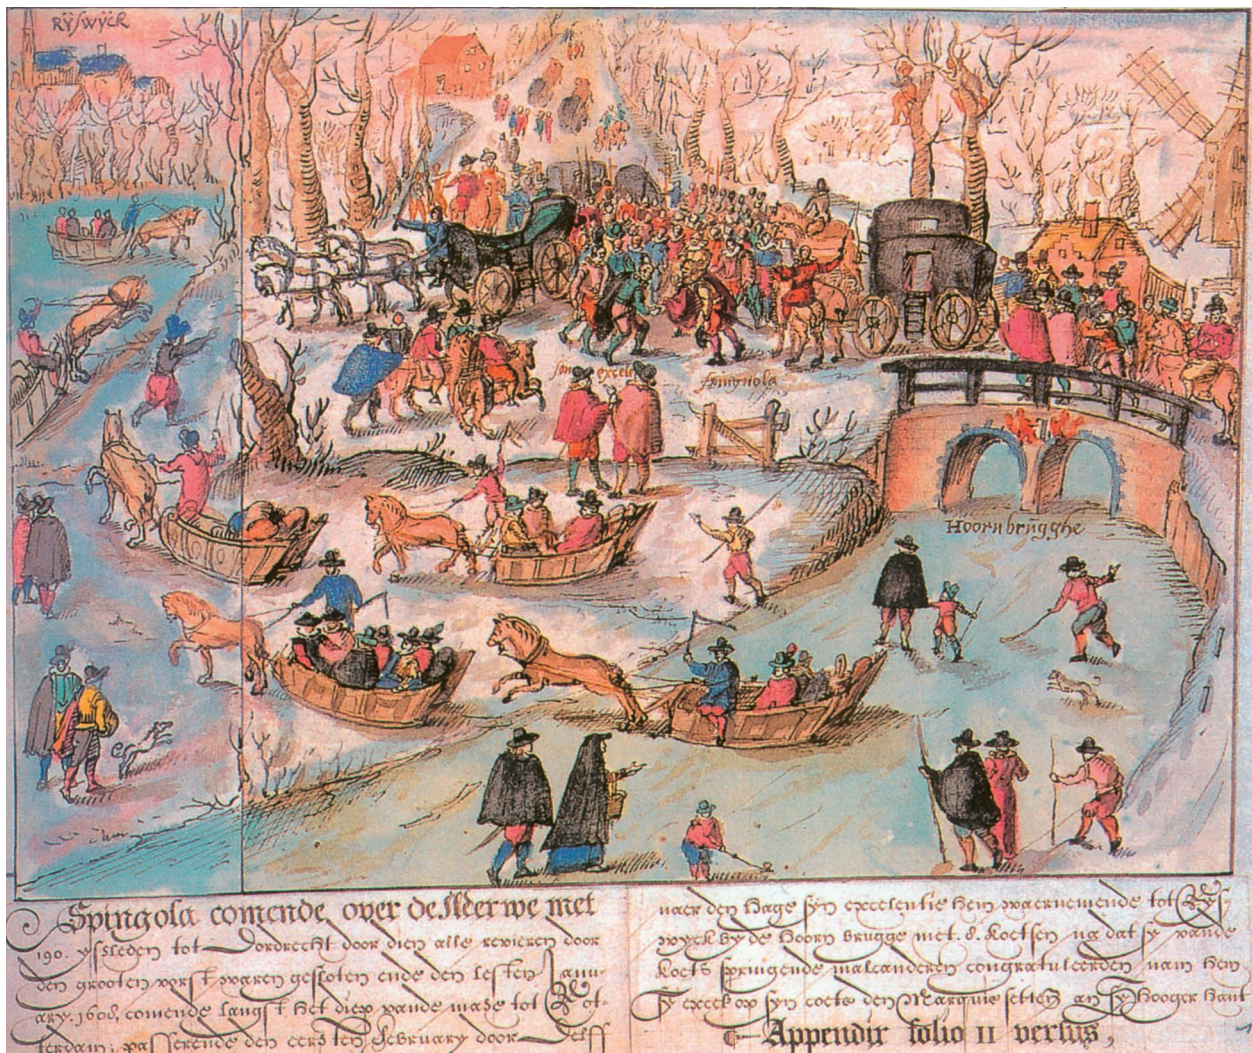 RÿSWÿCK
syn excele
Spingnola
Hoorn brugghe
Spingola comende over de Merwe met
190. yssleden tot Dordrecht door dien alle revieren door
den grooten vorst waren gesloten ende den lesten Janu-
ary. 1608, comende langst het diep vande mase tot Rot-
terdam; passerende den eersten February door Delff
naer den Hage syn excelentie hem waernemende tot Rys-
wyck by de Hoorn brugge met. 8. Koetsen na dat sy vande
Koets springende malcanderen congratuleerden nam hem
Sy excck op syn coets den Marquie settens an sy Hooger Hant
Appendix folio 11 versus,